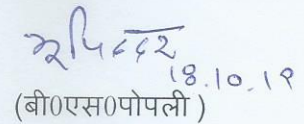 18.10.19
(बी0एस0पोपली )